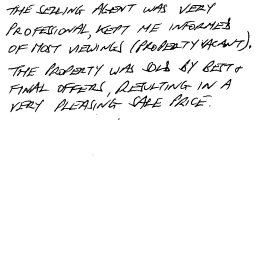 THE SELLING AGENT WAS VERY
PROFESSIONAL, KEPT ME INFORMED
OF MOST VIEWINGS (PROPERTY VACANT).
THE PROPERTY WAS SOLD BY BEST &
FINAL OFFERS, RESULTING IN A
VERY PLEASING SALE PRICE.